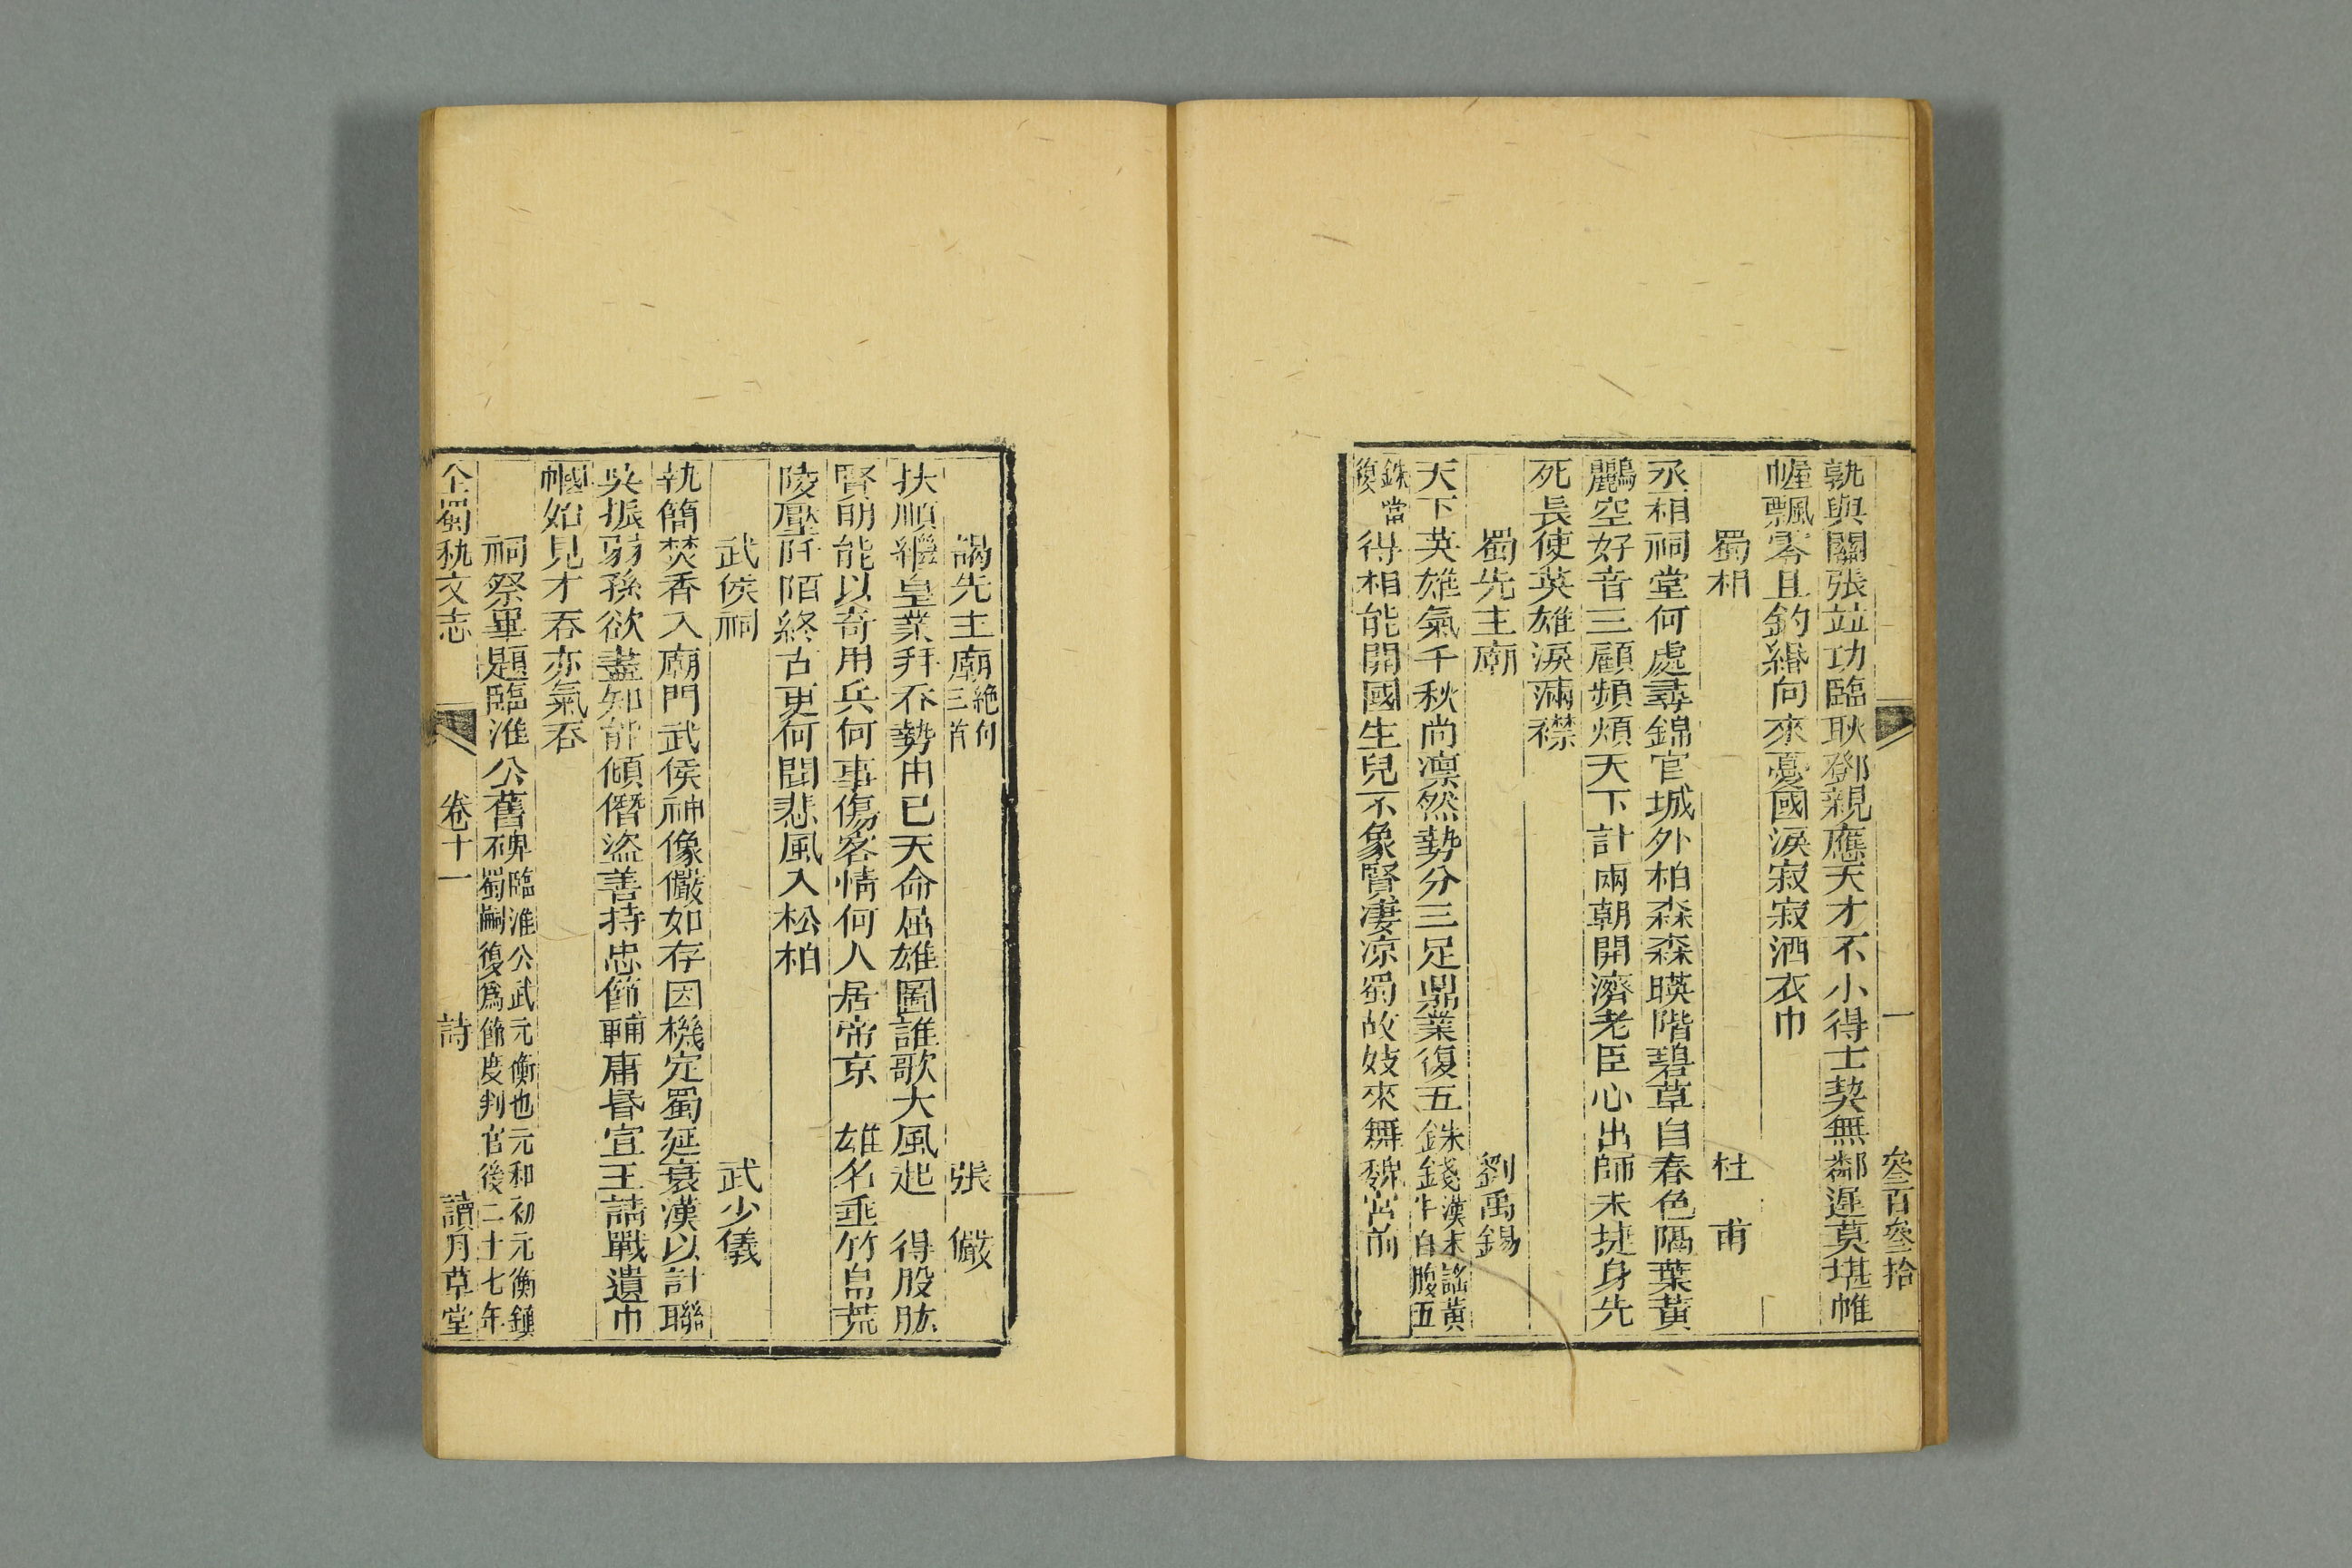 一 叄百叄拾
孰與關張竝功臨耿鄧親應天才不小得士契無鄰遲莫堪帷
幄飄零且釣緡向來憂國淚寂寂洒衣巾
蜀相 杜甫
丞相祠堂何處尋錦官城外柏森森暎階碧草自春色隔葉黃
鸝空好音三顧頻煩天下計兩朝開濟老臣心出師未捷身先
死長使英雄淚滿襟
蜀先主廟 劉禹錫
天下英雄氣千秋尚凜然勢分三足鼎業復五銖錢漢末謠黃牛白腹五
銖當復得相能開國生兒不象賢凄凉蜀故妓來舞魏宮前
謁先主廟絕句三首 張儼
扶順繼皇業拜不勢由已天命屈雄圖誰歌大風起 得股肱
賢明能以奇用兵何事傷客情何人居帝京 雄名垂竹帛荒
陵壓阡陌終古更何聞悲風入松柏
武侯祠 武少儀
執簡焚香入廟門武侯神像儼如存因機定蜀延衰漢以計聯
吳振弱孫欲盡知能傾僭盜善持忠節輔庸昬宣王請戰遺巾
幗始見才吞亦氣吞
祠祭畢題臨淮公舊碑臨淮公武元衡也元和初元衡鎮蜀嗣復爲節度判官後二十七年
全蜀秇文志 卷十一 詩 讀月草堂